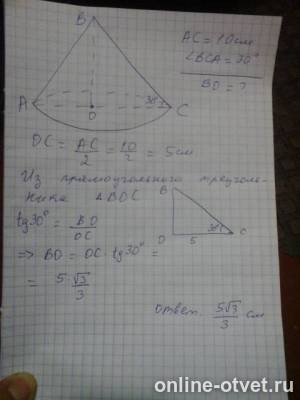 B
AC = 10 см
∠BCA = 30°
BO = ?
A
O
30°
C
OC = AC/2 = 10/2 = 5 см
Из прямоугольного треуголь-
ника ΔBOC
tg30° = BO/OC
=> BO = OC · tg30° =
= 5 · √3/3
B
O
5
30°
C
ответ. 5√3/3 см
online-otvet.ru